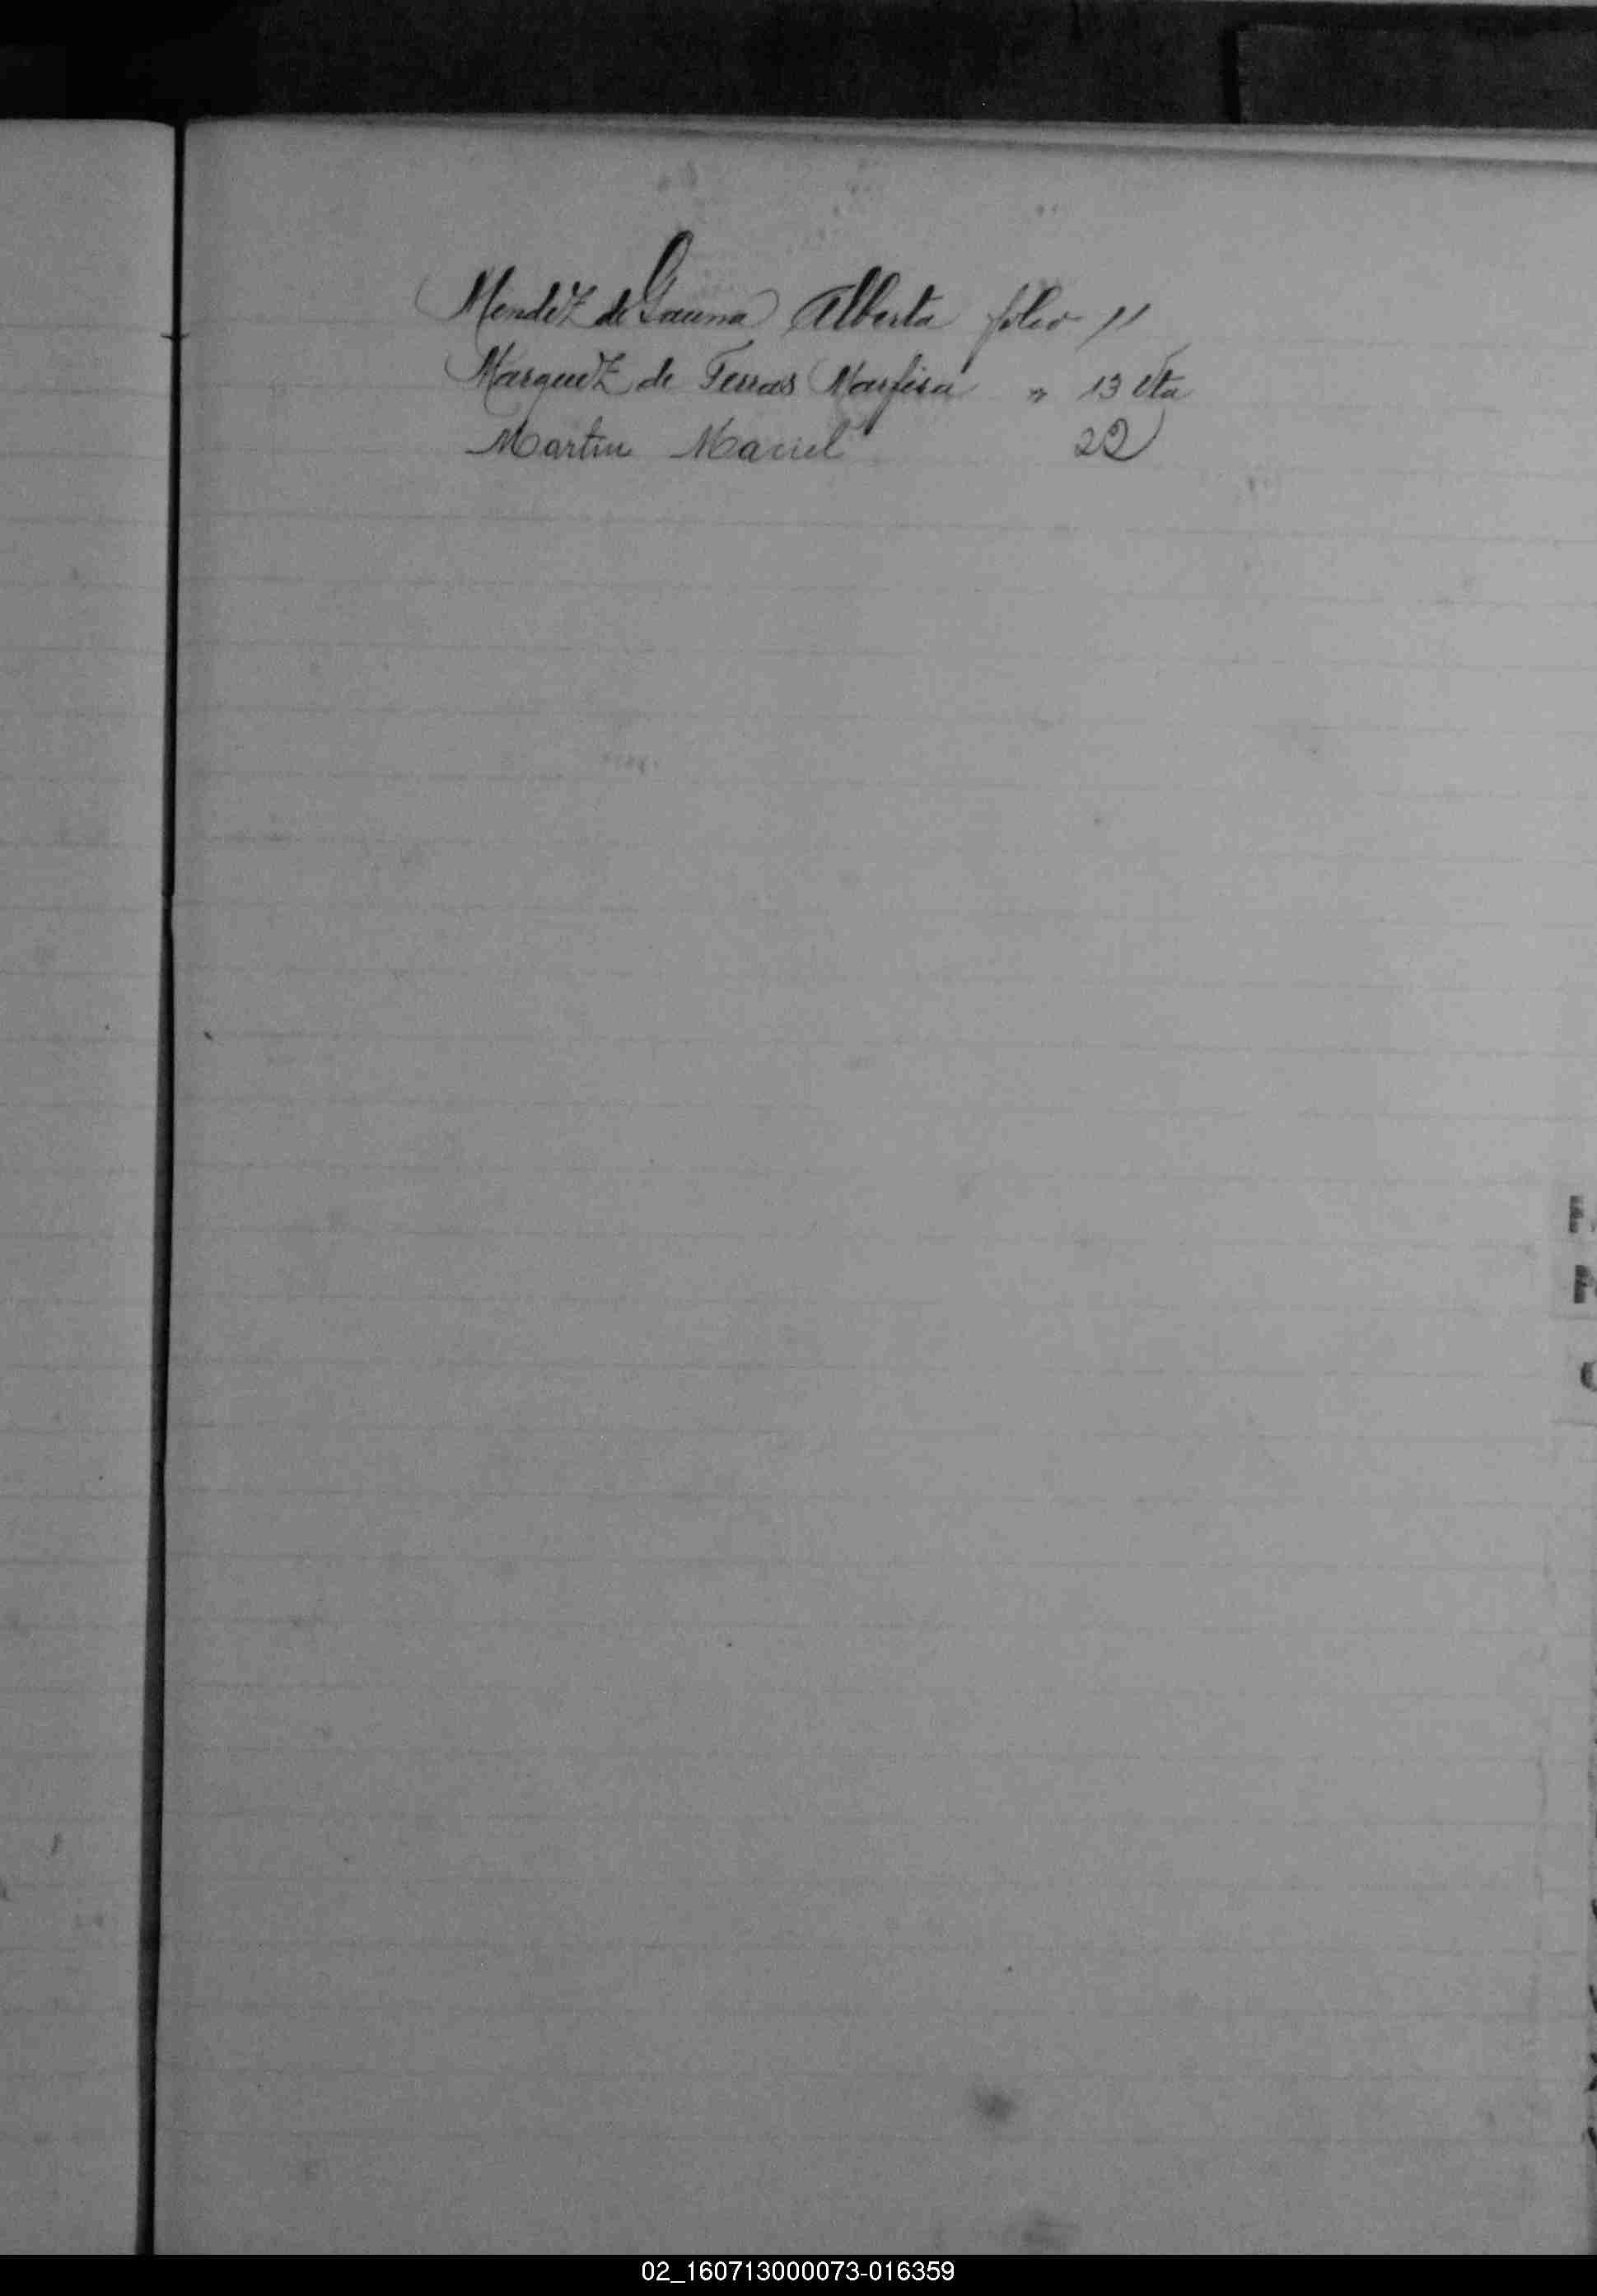 Mendez de Gauna Alberta folio 11
Marquez de Ferras Marfisa " 13 vta
Martin Maciel 22
02_160713000073-016359